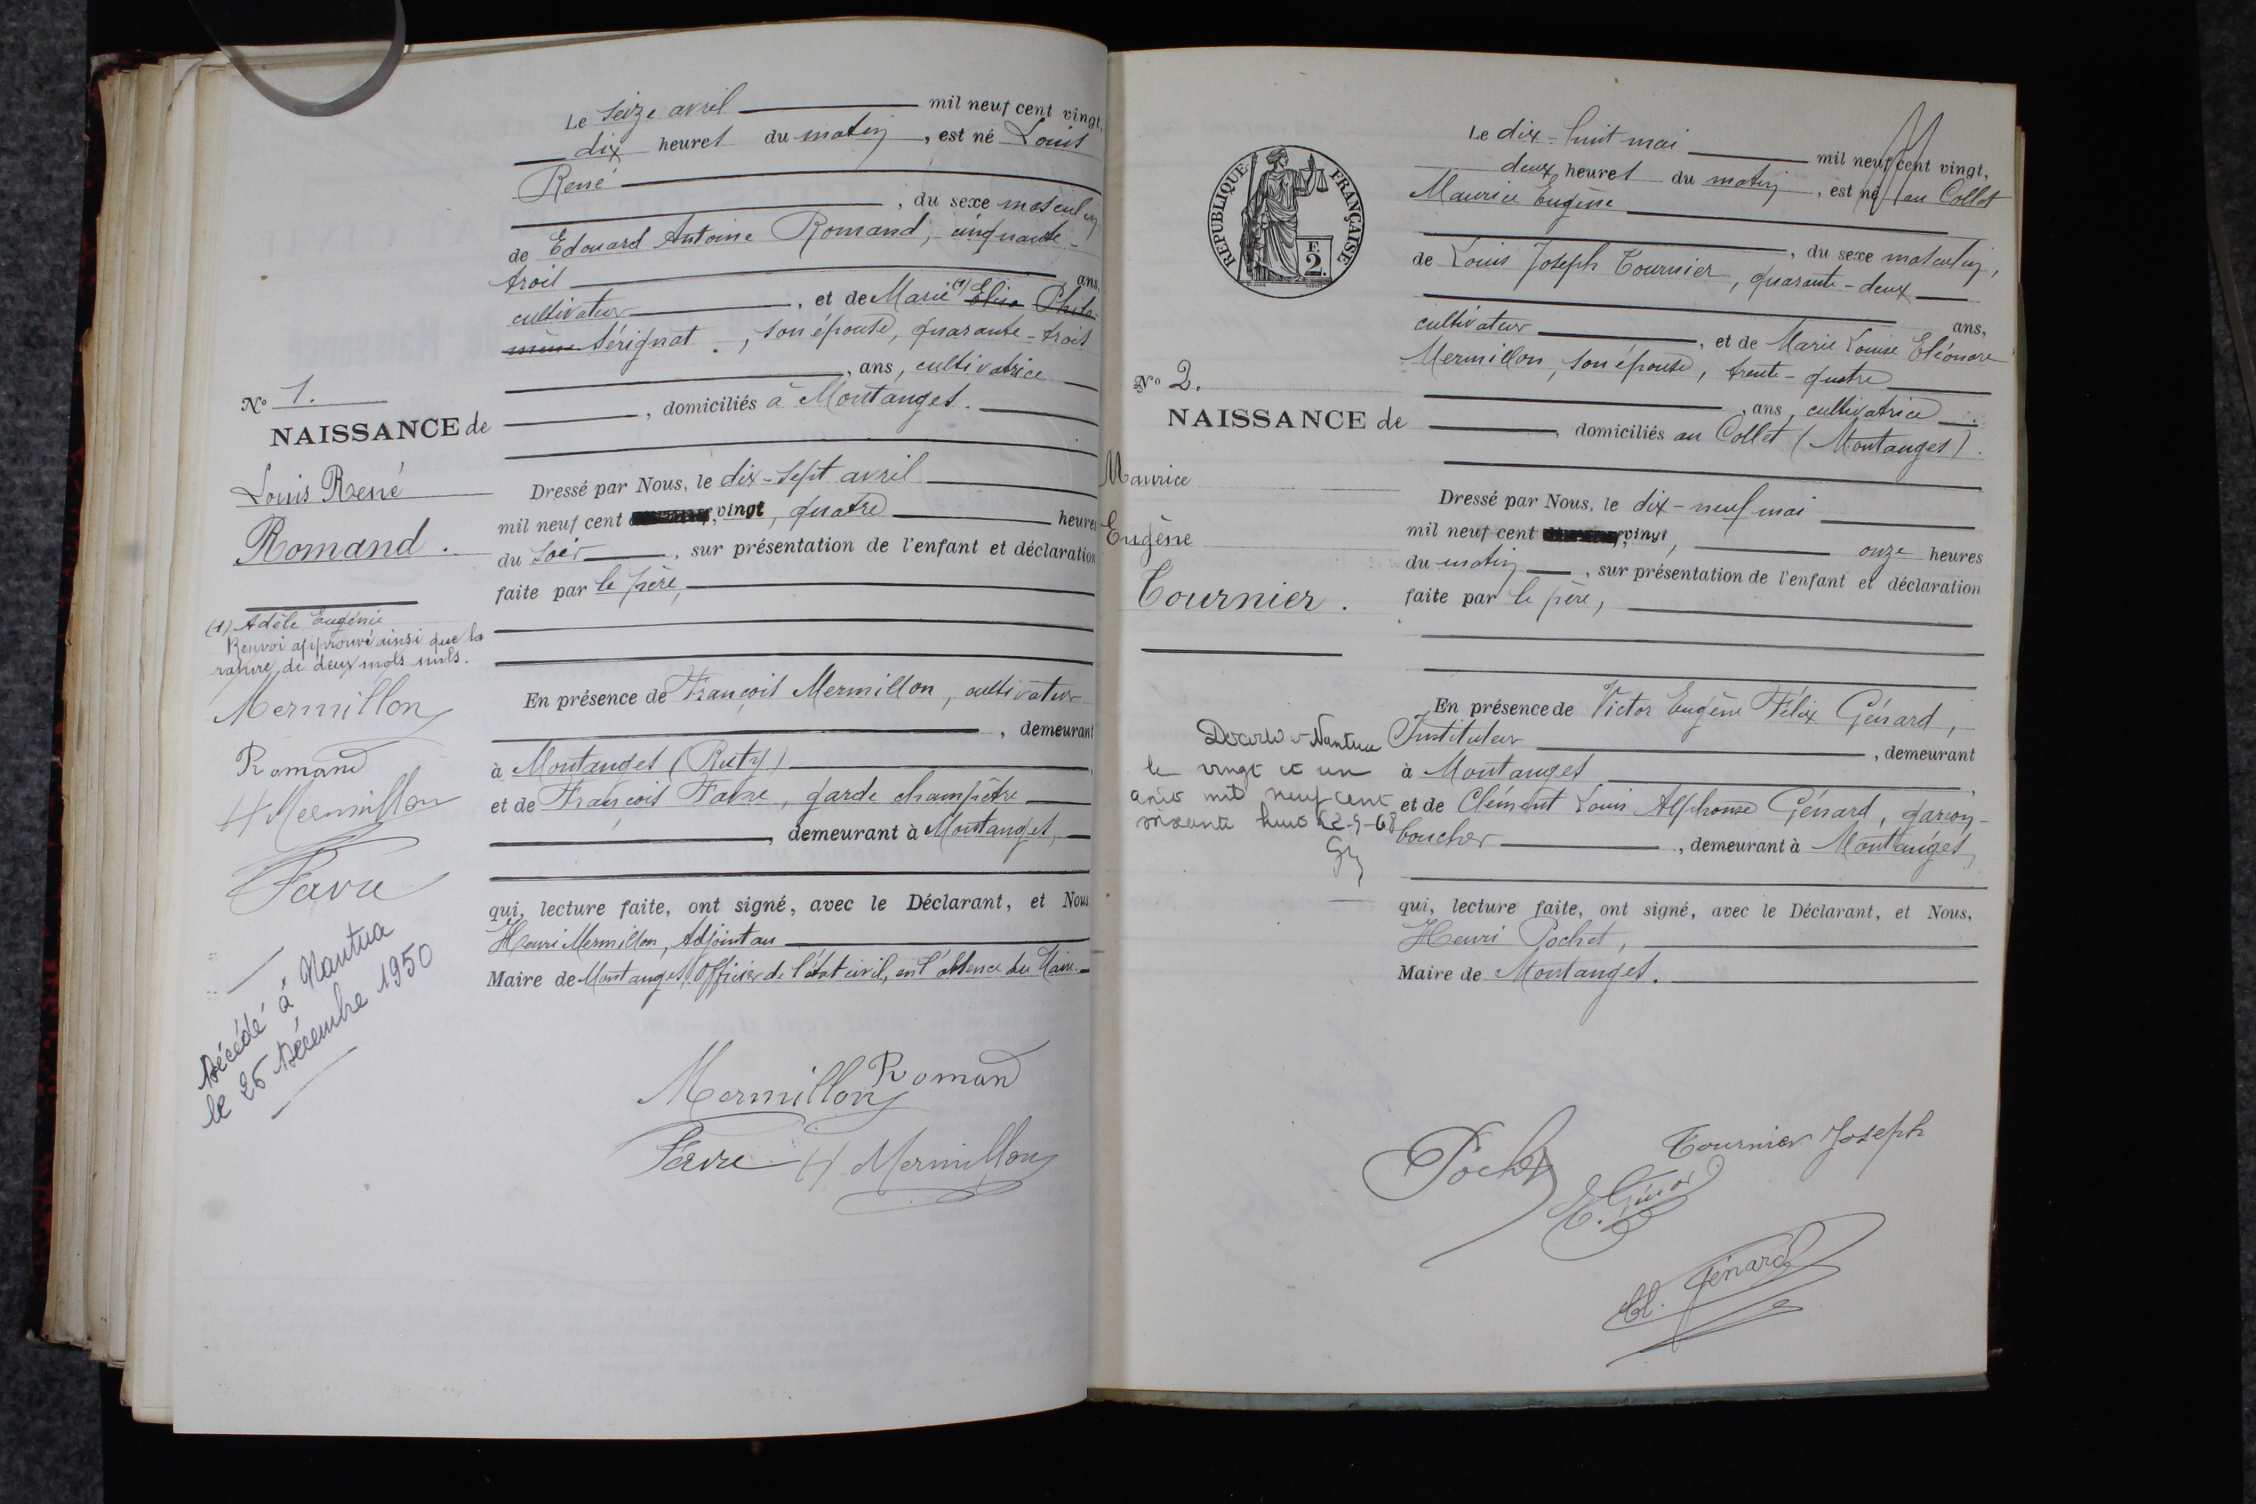 Le seize avril mil neuf cent vingt,
dix heures du matin, est né Louis
René
, du sexe masculin
de Edouard Antoine Romand, cinquante-
trois ans,
cultivateur, et de Marie (1) Elisa Philo-
mène Sérignat, son épouse, quarante-trois
, ans, cultivatrice
, domiciliés à Montanges.
N° 1.
NAISSANCE de
Louis René
Romand.
(1) Adèle Eugénie
Renvoi approuvé ainsi que la
rature de deux mots nuls.
Mermillon
Romand
H Mermillon
Favre
Décédé à Nantua
le 25 Décembre 1950
Dressé par Nous, le dix-sept avril
mil neuf cent vingt, quatre heures
du soir, sur présentation de l'enfant et déclaration
faite par le père,
En présence de François Mermillon, cultivateur
, demeurant
à Montanges (Ruty)
et de François Favre, garde champêtre
, demeurant à Montanges,
qui, lecture faite, ont signé, avec le Déclarant, et Nous
Henri Mermillon, Adjoint au
Maire de Montanges, Officier de l'état civil, en l'absence du Maire.
Romand
Mermillon
Favre H Mermillon
RÉPUBLIQUE FRANÇAISE
F.
2.
Le dix-huit mai mil neuf cent vingt,
deux heures du matin, est né au Collet
Maurice Eugène
, du sexe masculin,
de Louis Joseph Tournier, quarante-deux
ans,
cultivateur, et de Marie Louise Eléonore
Mermillon, son épouse, trente-quatre
, ans, cultivatrice
, domiciliés au Collet (Montanges).
N° 2.
NAISSANCE de
Maurice
Eugène
Tournier.
Nantua
le vingt et un
mil neuf cent
2-5-68
Dressé par Nous, le dix-neuf mai
mil neuf cent vingt, onze heures
du matin, sur présentation de l'enfant et déclaration
faite par le père,
En présence de Victor Eugène Félix Génard,
Instituteur, demeurant
à Montanges
et de Clément Louis Alphonse Génard, garçon-
boucher, demeurant à Montanges,
qui, lecture faite, ont signé, avec le Déclarant, et Nous,
Henri Pochet,
Maire de Montanges.
Tournier Joseph
Pochet
Génard
Cl. Génard